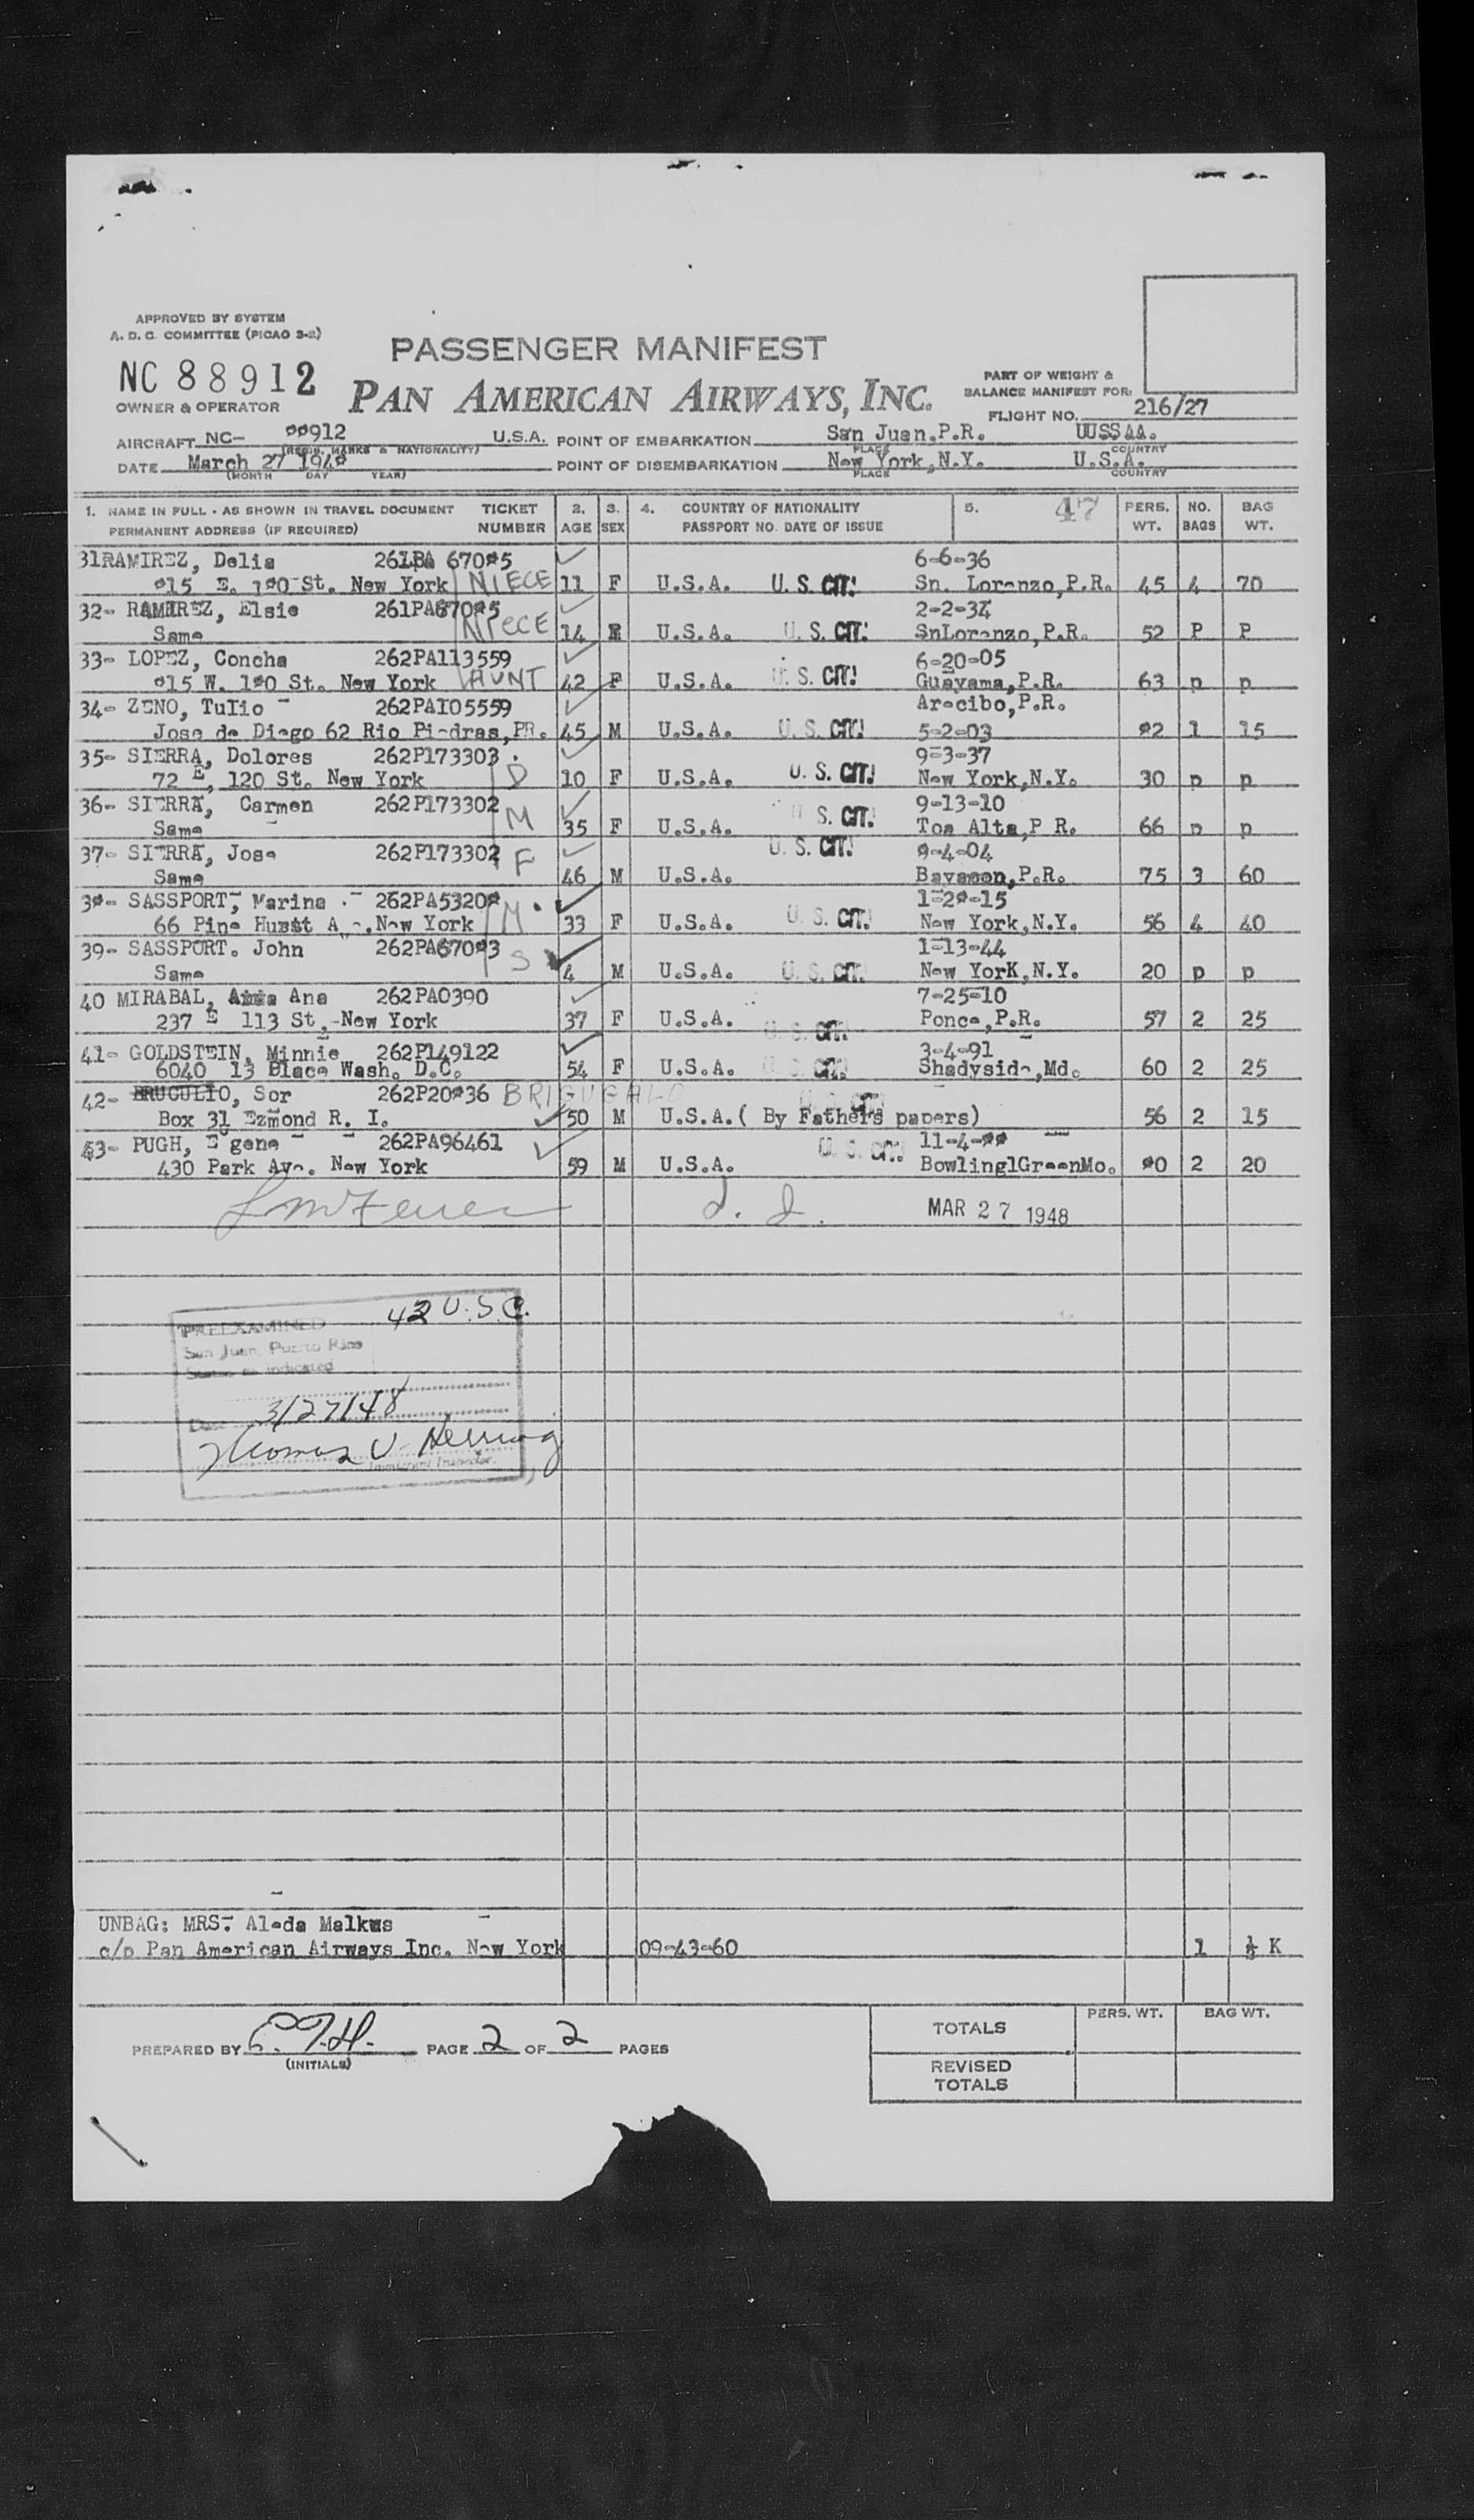 APPROVED BY SYSTEM
A. D. C. COMMITTEE (PICAO 3-2)
PASSENGER MANIFEST
NC 88912
OWNER & OPERATOR
PAN AMERICAN AIRWAYS, INC.
PART OF WEIGHT &
BALANCE MANIFEST FOR:
FLIGHT NO. 216/27
AIRCRAFT NC- 88912 U.S.A. POINT OF EMBARKATION San Juan,P.R. UUSSAA.
(REGIS. MARKS & NATIONALITY) PLACE COUNTRY
DATE March 27 1948 POINT OF DISEMBARKATION New York,N.Y. U.S.A.
(MONTH DAY YEAR) PLACE COUNTRY
1. NAME IN FULL - AS SHOWN IN TRAVEL DOCUMENT TICKET 2. 3. 4. COUNTRY OF NATIONALITY 5. 47 PERS. NO. BAG
PERMANENT ADDRESS (IF REQUIRED) NUMBER AGE SEX PASSPORT NO. DATE OF ISSUE WT. BAGS WT.
31RAMIREZ, Delia 67085 6-6-36
815 E. 180 St. New York NIECE 11 F U.S.A. U. S. CIT! Sn. Lorenzo,P.R. 45 4 70
32- RAMIREZ, Elsie 261PA67085 2-2-34
Same NIECE 14 F U.S.A. U. S. CIT! SnLorenzo,P.R. 52 P P
33- LOPEZ, Concha 262PA113559 6-20-05
815 W. 180 St. New York AUNT 42 F U.S.A. U. S. CIT! Guayama,P.R. 63 p p
34- ZENO, Tulio 262PA105559 Arecibo,P.R.
Jose de Diego 62 Rio Piedras,PR. 45 M U.S.A. U. S. CIT! 5-2-03 82 1 15
35- SIERRA, Dolores 262P173303 9-3-37
72 E, 120 St. New York D 10 F U.S.A. U. S. CIT! New York,N.Y. 30 p p
36- SIERRA, Carmen 262P173302 9-13-10
Same M 35 F U.S.A. U. S. CIT! Toa Alta,P R. 66 p p
37- SIERRA, Jose 262P173302 F U. S. CIT! 9-4-04
Same 46 M U.S.A. Bayamon,P.R. 75 3 60
38- SASSPORT, Marina 262PA53208 1-28-15
66 Pine Hurst New York M 33 F U.S.A. U. S. CIT! New York,N.Y. 56 4 40
39- SASSPORT. John 262PA67083 1-13-44
Same S 4 M U.S.A. U. S. CIT! New YorK,N.Y. 20 p p
40 MIRABAL, Ana 262PA0390 7-25-10
237 E 113 St,-New York 37 F U.S.A. U. S. CIT! Ponce,P.R. 57 2 25
41- GOLDSTEIN, Minnie 262P149122 3-4-91
6040 13 Place Wash. D.C. 54 F U.S.A. U. S. CIT! Shadyside,Md. 60 2 25
42- BRUGULIO, Sor 262P20836 BRIGUGALO U. S. CIT!
Box 31 Ezmond R. I. 50 M U.S.A.( By Fathers papers) 56 2 15
43- PUGH, E gene 262PA96461 U. S. CIT! 11-4-88
430 Park Ave. New York 59 M U.S.A. BowlinglGreenMo. 80 2 20
MAR 27 1948
42 U.S.C.
PREEXAMINED
San Juan, Puerto Rico
Status as indicated
Date 3/27/48
Thomas V.
Immigrant Inspector.
UNBAG: MRS. Aleda Malkus
c/o Pan American Airways Inc. New York 09-43-60 1 ½ K
PREPARED BY PAGE 2 OF 2 PAGES
(INITIALS)
TOTALS PERS. WT. BAG WT.
REVISED
TOTALS